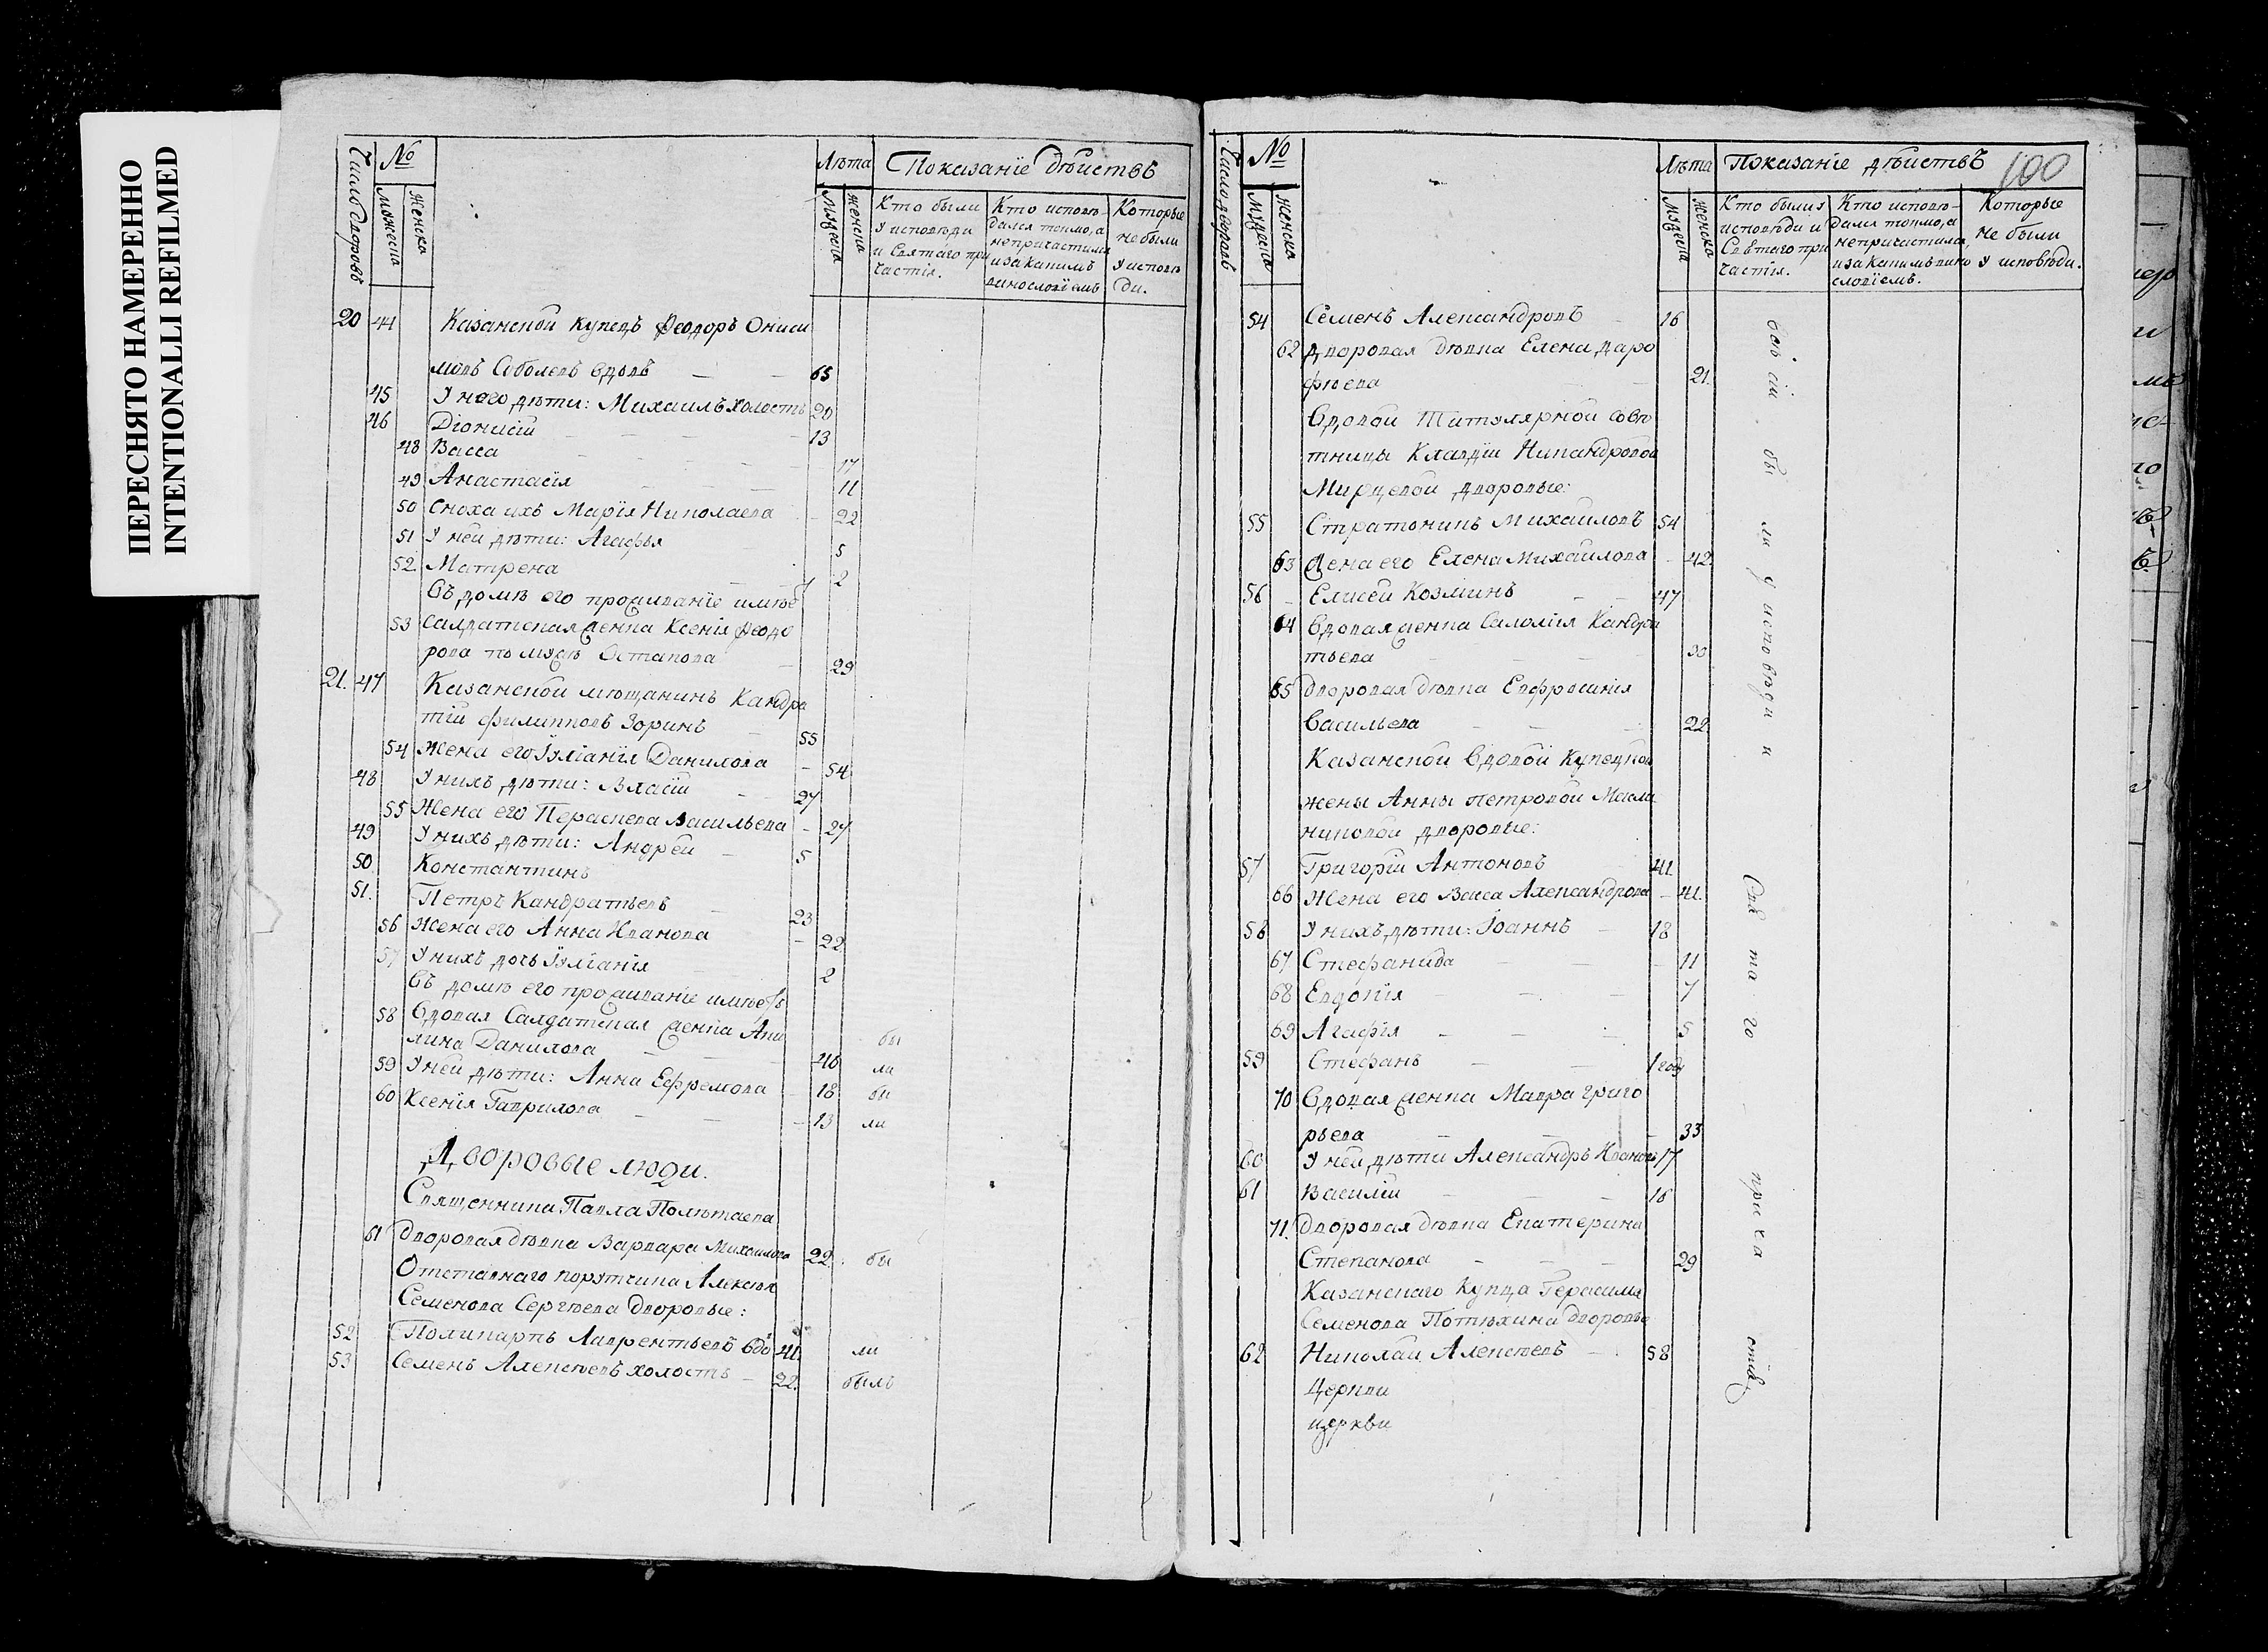 ПЕРЕСНЯТО НАМЕРЕННО
INTENTIONALLI REFILMED
Число дворовъ
№
Мужеска
Женска
Лѣта
Мужеска
Женска
Показанїе дѣиствъ
Кто были у исповѣди и Святаго причастїя.
Кто исповѣдался токмо, а непричастился и за какимъ винословїемъ
Которые не были у исповѣди.
20 44 Казанской купецъ Феодоръ Ониси
мовъ Соболевъ вдовъ 65
45 У него дѣти: Михаилъ холостъ 20
46 Дїонисїй 13
48 Васса 17
49 Анастасїя 11
50 Сноха ихъ Марїя Николаева 22
51 У ней дѣти: Агафья 5
52 Матрена 2
Въ домѣ его проживанїе имѣетъ
53 Салдатская женка Ксенїя Феодо
рова по мужѣ Остапова 29
21. 47 Казанской мѣщанинъ Кандра
тїй Филипповъ Зоринъ 55
54 Жена его Іулїанїя Данилова 54
48 У нихъ дѣти: Власїй 27
55 Жена его Пераскева Васильева 27
49 У нихъ дѣти: Андрей 5
50 Константинъ
51. Петръ Кандратьевъ 23
56 Жена его Анна Иванова 22
57 У нихъ дочь Іулїанїя 2
Въ домѣ его проживанїе имѣетъ
58 Вдовая Салдатская женка Аки
лина Данилова 46 бы
59 У ней дѣти: Анна Ефремова 18 ли
60 Ксенїя Гаврилова 13 бы
ли
Дворовые люди.
Священника Павла Полѣтаева
61 Дворовая дѣвка Варвара Михаилова 22 бы
Отставнаго порутчика Алексѣя
Семенова Сергѣева дворовые:
52 Поликарпъ Лаврентьевъ вдо 41 ли
53 Семенъ Алексѣевъ холостъ 22. былъ
Число дворовъ
№
Мужеска
Женска
Лѣта
Мужеска
Женска
Показанїе дѣиствъ
100
Кто были у исповѣди и Святаго причастїя.
Кто исповѣдался токмо, а непричастился, и за какимъ винословїемъ.
Которые не были у исповѣди.
54 Семенъ Александровъ 16
62 Дворовая дѣвка Елена Даро
фѣева 21.
Вдовой Титулярной совѣ
тницы Клавдїи Никандровой
Мирцевой дворовые:
55 Стратоникъ Михаиловъ 54
63 Жена его Елена Михаилова 42.
56 Елисей Козминъ 47
64 Вдовая женка Саломїя Кандра
тьева 30
65 Дворовая дѣвка Евфросинїя
Васильева 22.
Казанской вдовой купецкой
жены Анны Петровой Масле
никовой дворовые:
57 Григорїй Антоновъ 41.
66 Жена его Васса Александрова 41.
58 У нихъ дѣти: Іоаннъ 18
67 Стефанида 11
68 Евдокїя 7
69 Агафїя 5
59 Стефанъ 1 годъ
70 Вдовая женка Мавра Григо
рьева 33
60 У ней дѣти Александръ Ивановъ 17
61 Василїй 16
71. Дворовая дѣвка Екатерина
Степанова 29
Казанскаго Купца Герасима
Семенова Потѣхина дворовые
62 Николай Алексѣевъ 58
Церкви
церкви
всѣ сїи бы ли у исповѣди и Свя та го при ча стїя